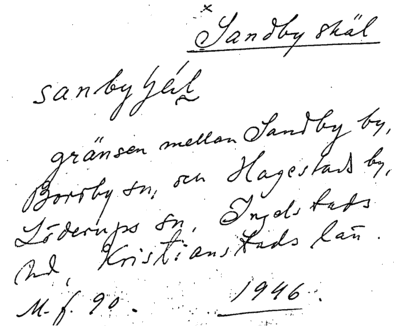 × Sandby skäl
sanbyʃɛ́l
gränsen mellan Sandby by,
Borrby sn, och Hagestads by,
Löderups sn, Ingelstads
hd, Kristianstads län.
M. f. 90. 1946.